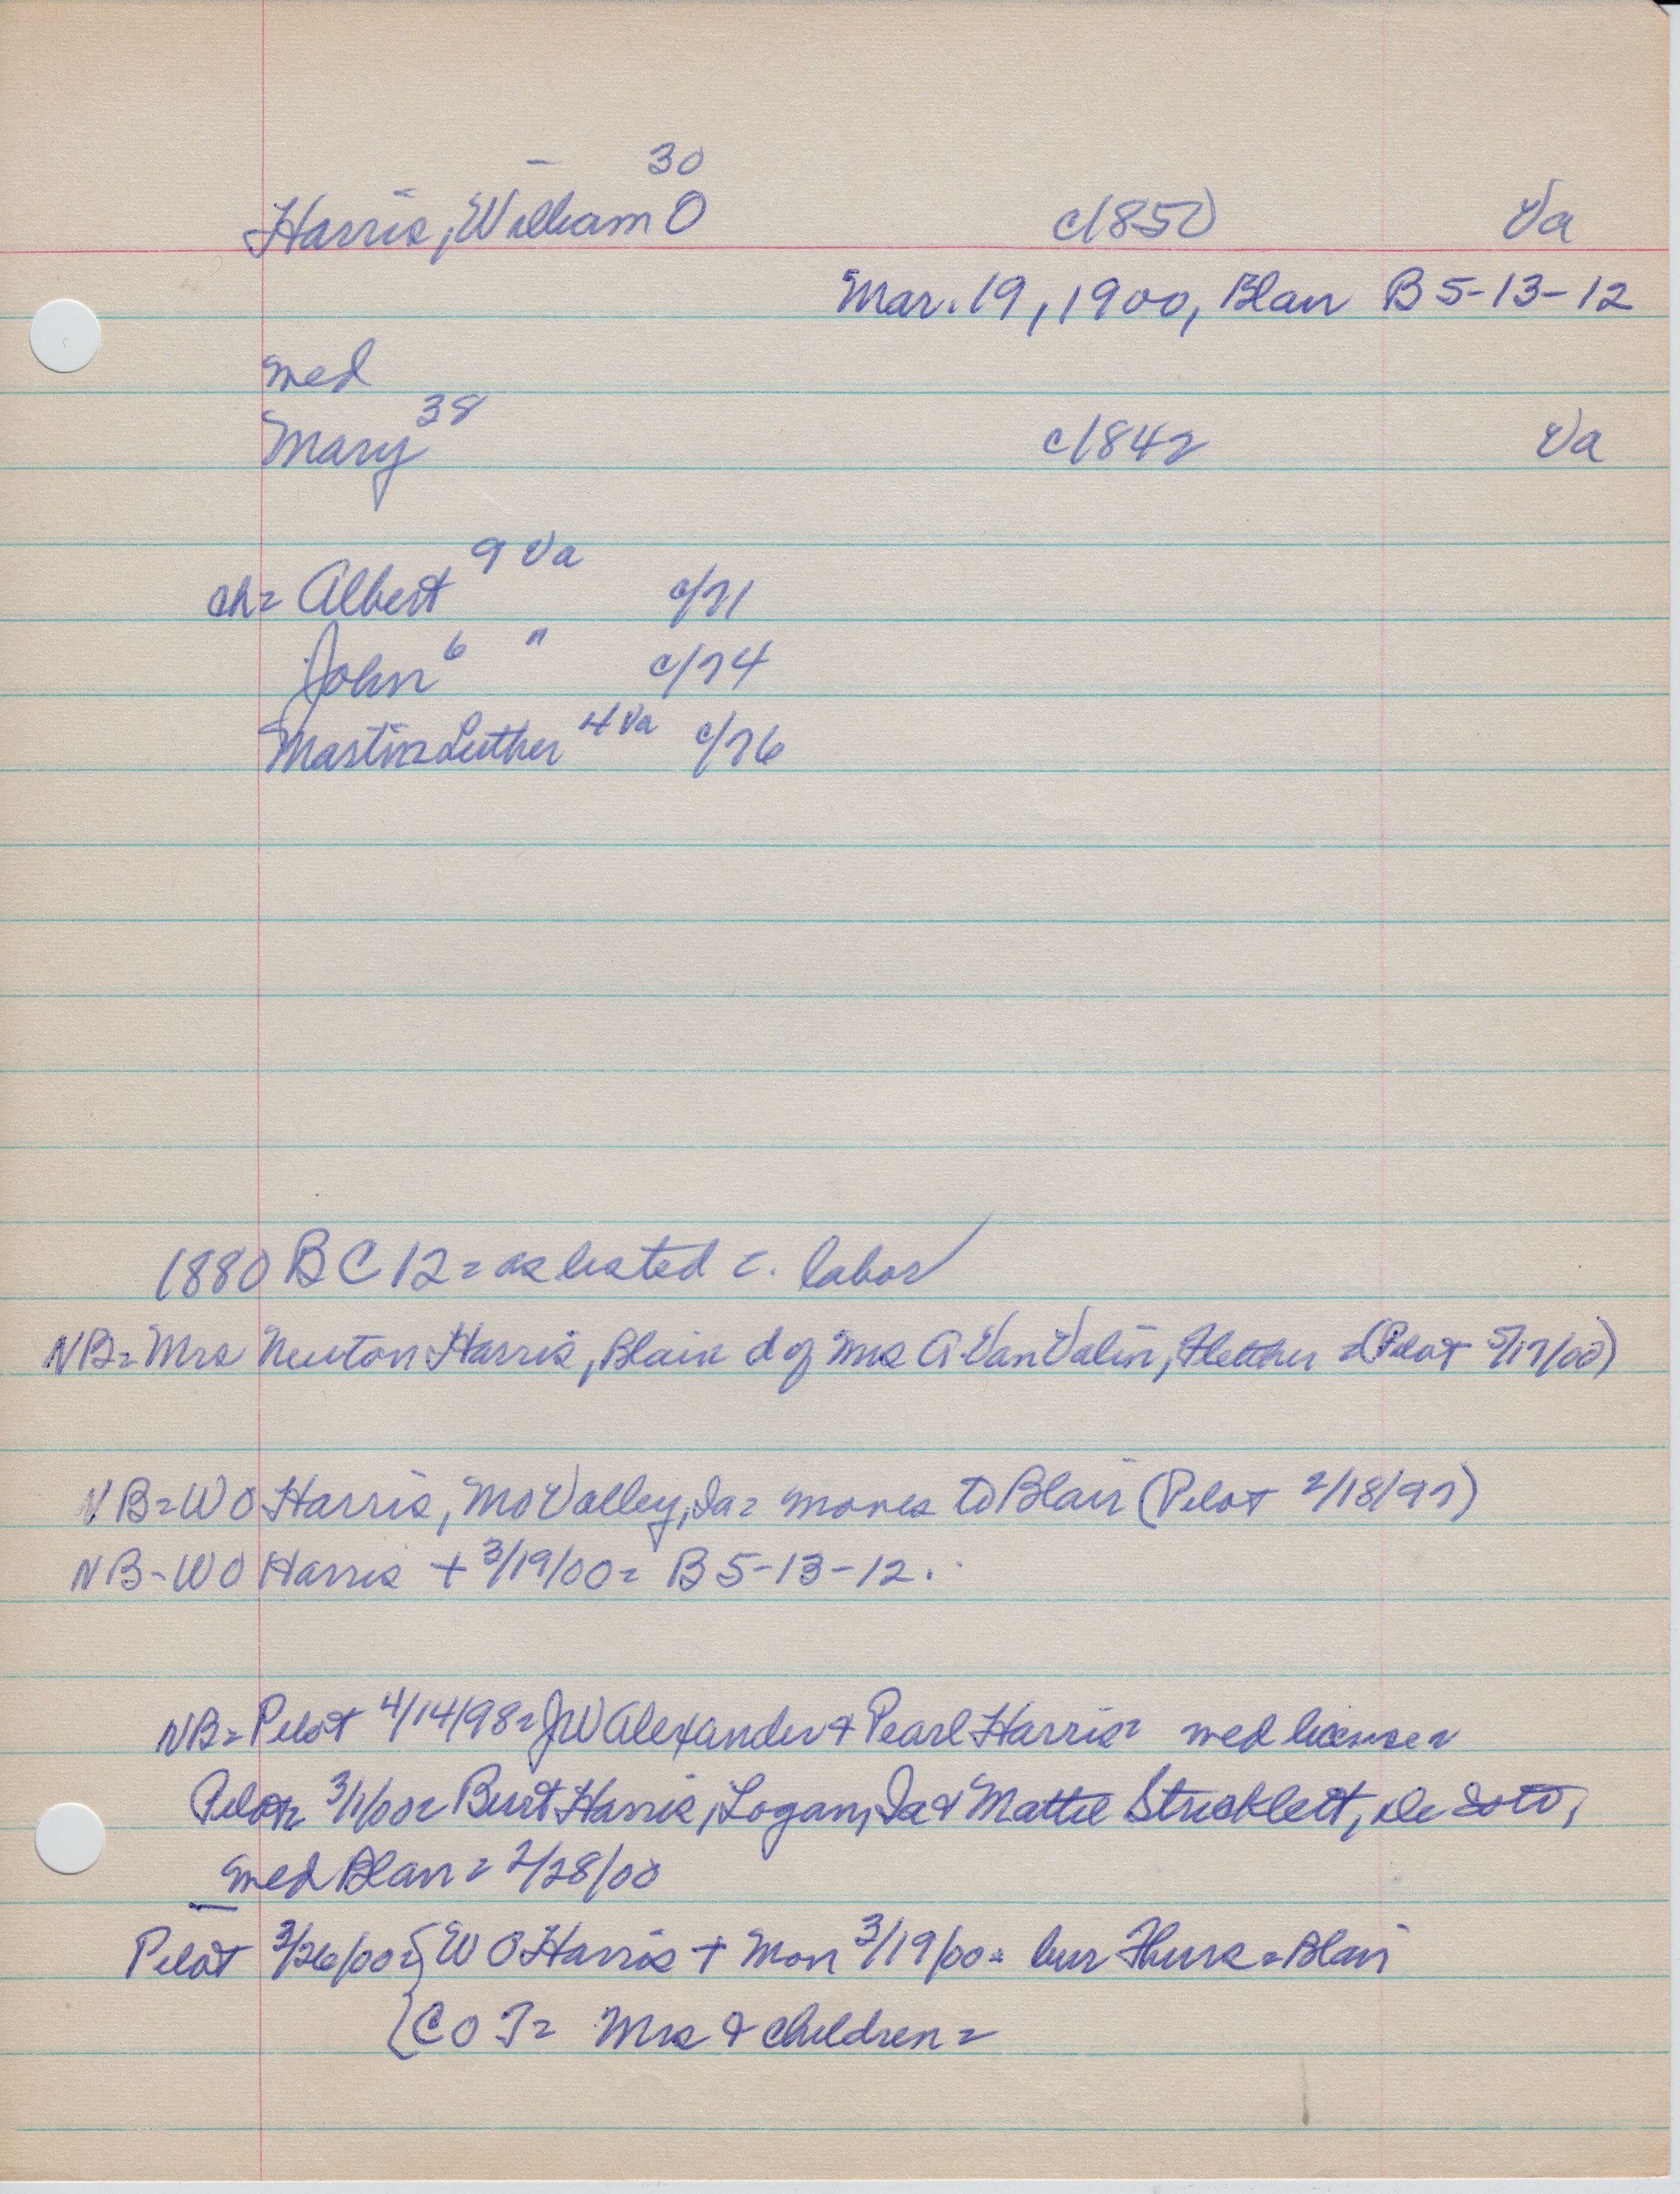 30
Harris, William O c/1850 Va
Mar. 19, 1900, Blair B 5-13-12
med
Mary 38 c/1842 Va
ch= Albert 9 Va c/71
John 6 " c/74
Martin Luther 4 Va c/76
1880 B C 12 = as listed = labor
NB= Mrs Newton Harris, Blair d of Mrs A Van Valin, Fletcher = (Pilot 5/17/00)
NB= W O Harris, Mo Valley, Ia = moves to Blair (Pilot 2/18/97)
NB- W O Harris + 3/19/00 = B 5-13-12.
NB= Pilot 4/14/98 = J W Alexander & Pearl Harris = med license =
Pilot = 3/1/00 = Burt Harris, Logan, Ia & Mattie Stricklett, De Soto,
med Blair = 2/28/00
Pilot 3/26/00 = { W O Harris + Mon 3/19/00 = bur Thurs = Blair
{ C O T = Mrs & children =